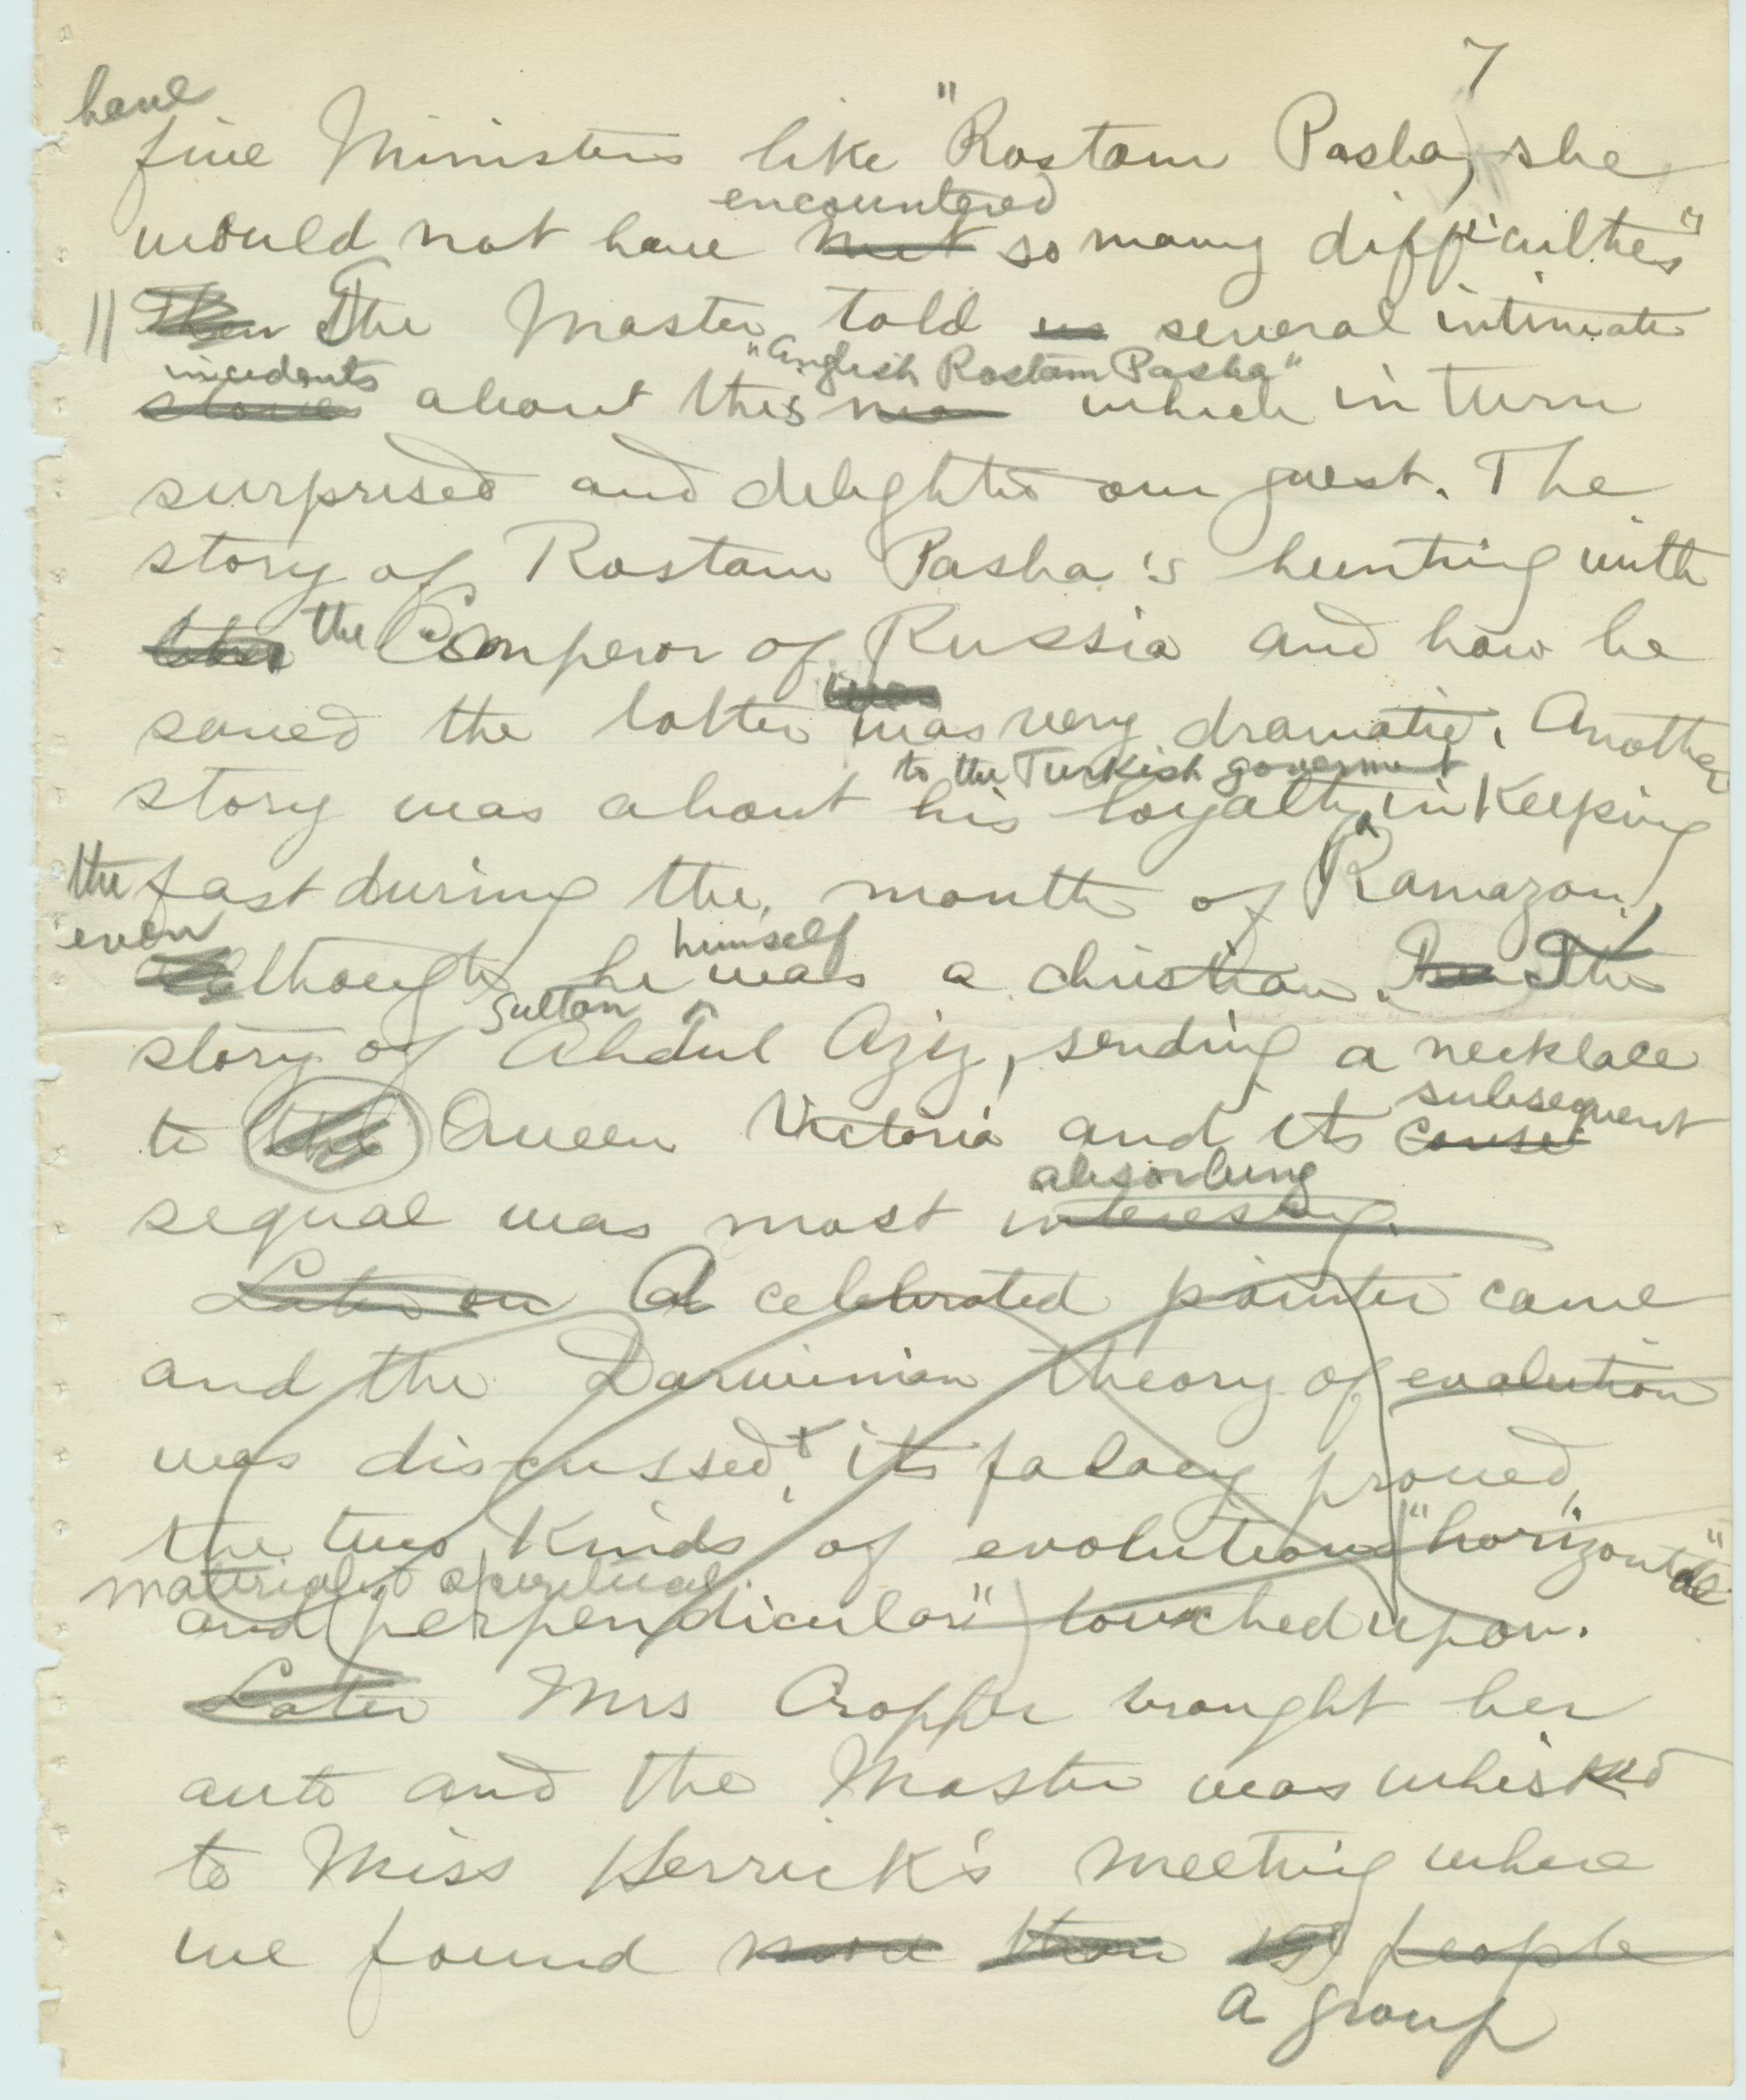 7
have
five Ministers like "Rostam Pasha, she
encountered
would not have met so many difficulties"
|| Then The Master told us several intimate
incidents "English Rostam Pasha"
stories about this man which in turn
surprised and delighted our guest. The
story of Rostam Pasha's hunting with
the Emperor of Russia and how he
saved the latter was very dramatic. Another
to the Turkish goverment
story was about his loyalty in keeping
the fast during the month of Ramazan,
even himself
although he was a christian. The
Sultan
story of Abdul Aziz, sending a necklace
subsequent
to the Queen Victoria and its cause
absorbing
sequal was most interesting.
Later on A celebrated painter came
and the Darwinian theory of evolution
was discussed, & its falacy proved,
the two kinds of evolution "horizontal"
material & spiritual
and (perpendicular") touched upon.
Later Mrs Cropper brought her
auto and the Master was whisked
to Miss Herrick's meeting where
we found more than people
a group